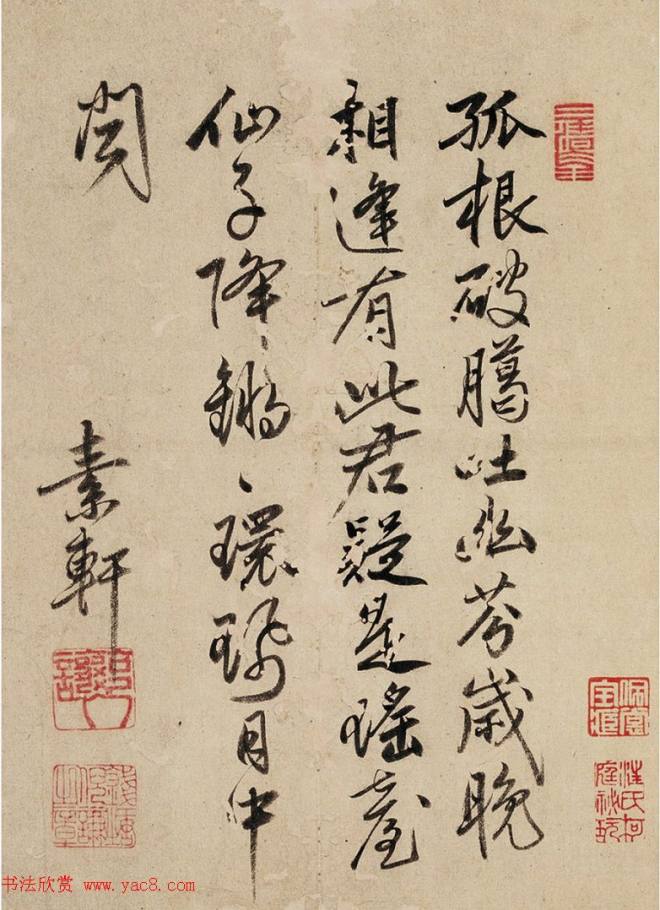 孤根破臈吐幽芬歲晚
相逢有此君疑是瑤臺
仙子降鏘〻環珮月中
聞
素軒
汪氏柯庭祕玩
书法欣赏 www.yac8.com